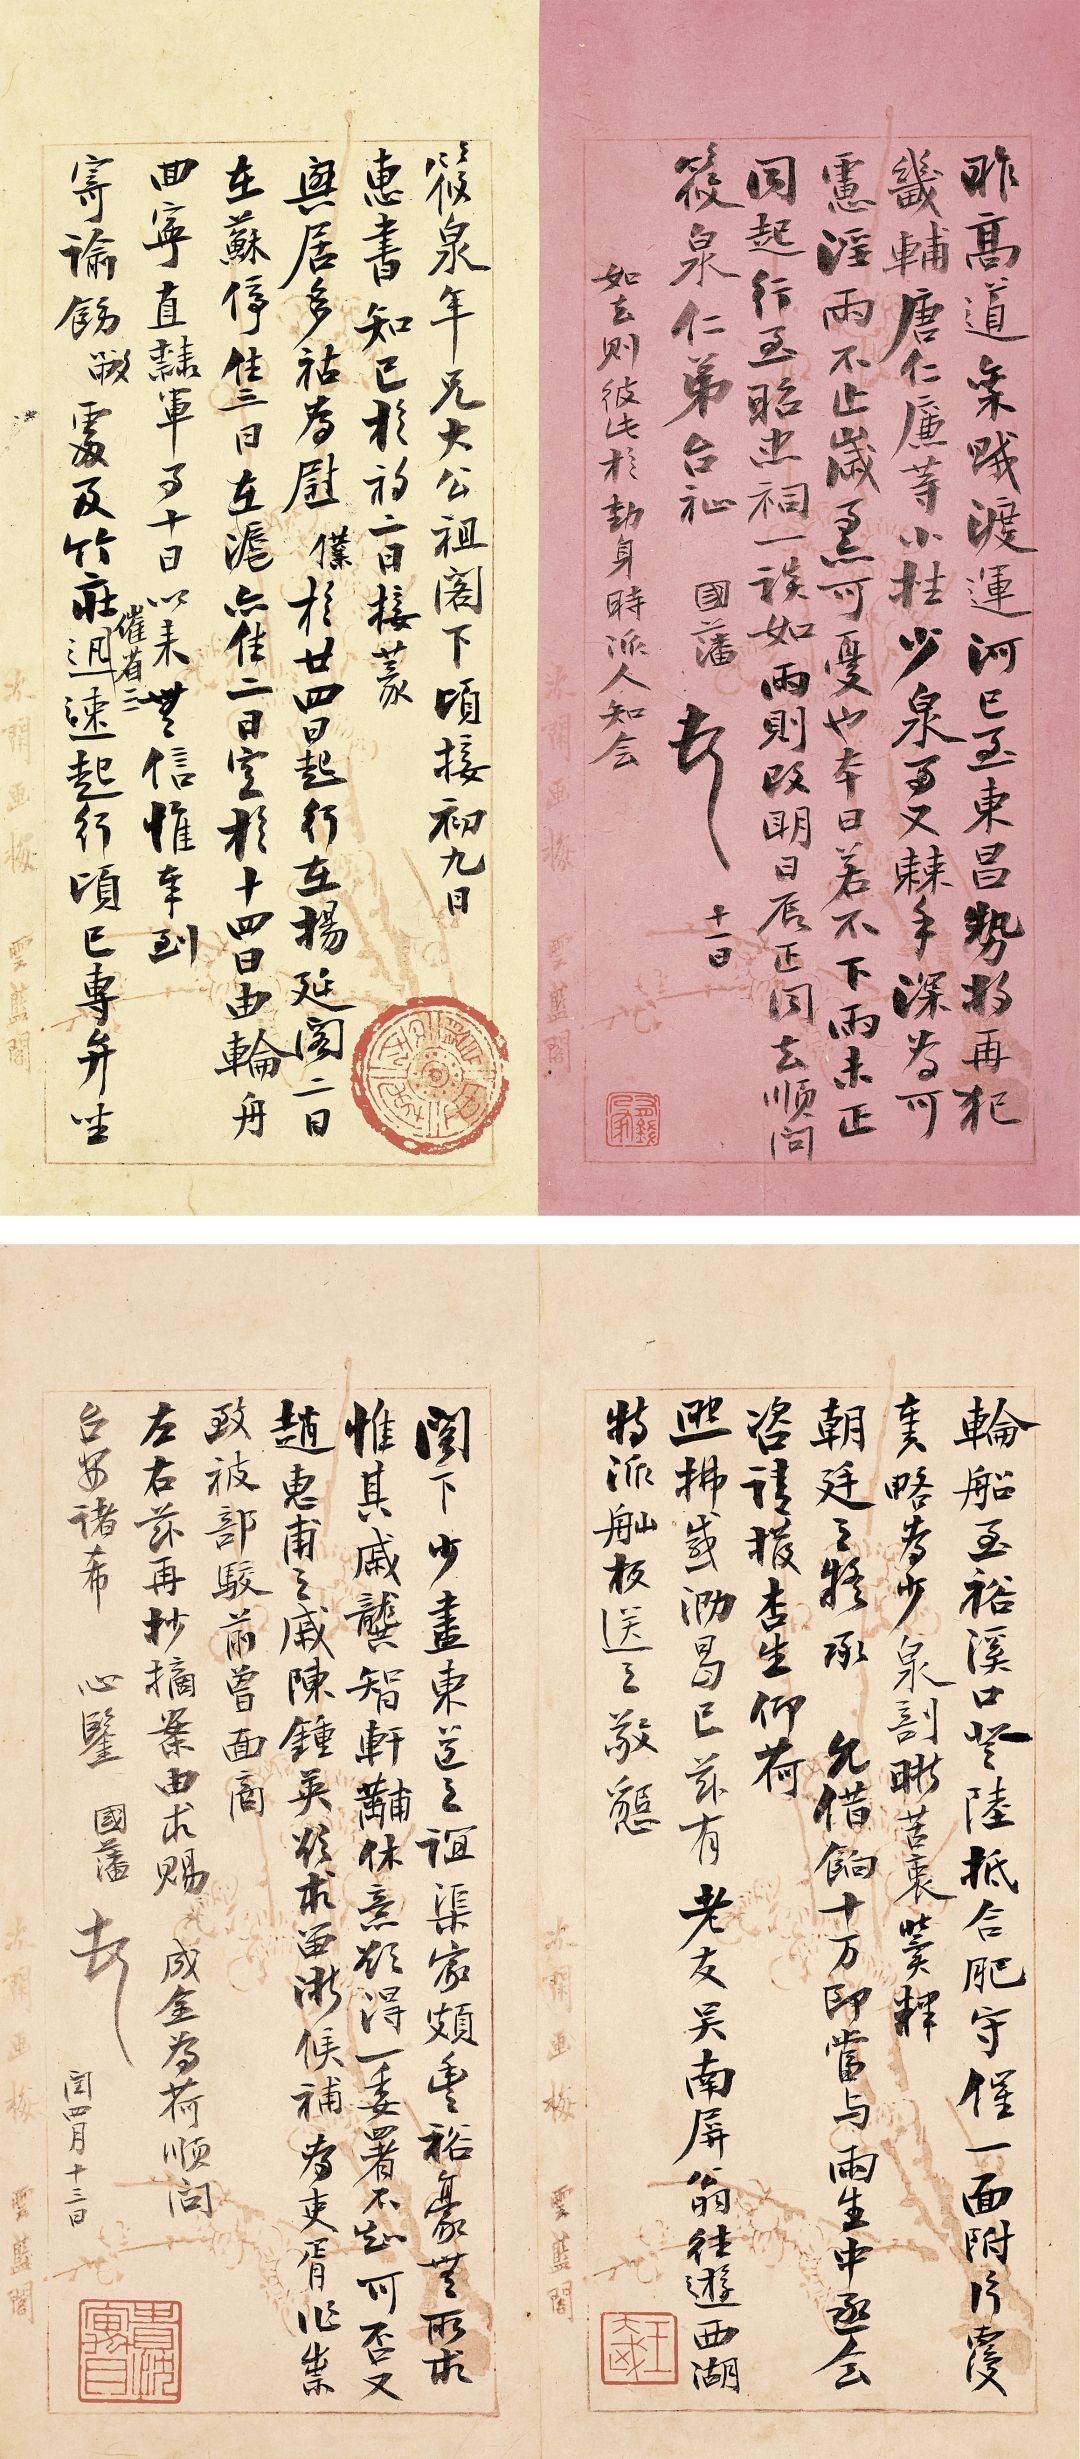 昨高道無賊渡運河已至東昌勢將再犯
畿輔唐仁廉等小挫少泉事又棘手深為可
慮淫雨不止歲事可憂也本日若不下雨未正
同起行至昭忠祠一談如雨則改明日辰正同去順問
筱泉仁弟台祉 國藩 頓首 十一日
如去則彼此於動身時派人知會
筱泉年兄大公祖閣下頃接初九日
惠書知已於初二日接篆
興居多祜為慰僕於廿四日起行在揚延閣二日
在蘇停住三日在滬亦住二日定於十四日由輪舟
回寧直隸軍事十日以來無信惟奉到
寄諭飭敝處及竹莊
催省三
迅速起行頃已專弁坐
輪船至裕溪口登陸抵合肥守催一面附片覆
奏略為少泉剖晰苦衷冀釋
朝廷之疑承 允借餉十萬即當與雨生中丞會
咨請撥杏生仰荷
照拂感泐曷已茲有老友吳南屏翁往遊西湖
特派舢板送之敬懇
閣下少盡東道之誼渠家頗豐裕豪無所求
惟其戚龔智軒黼休意欲得一委署不知可否又
趙惠甫之戚陳鍾英欲求留浙候補為吏胥作祟
致被部駁前曾面商
左右茲再抄摘案由求賜 成全為荷順問
台安諸希 心鑒 國藩 頓首 閏四月十三日
太閒画梅 雲藍閣